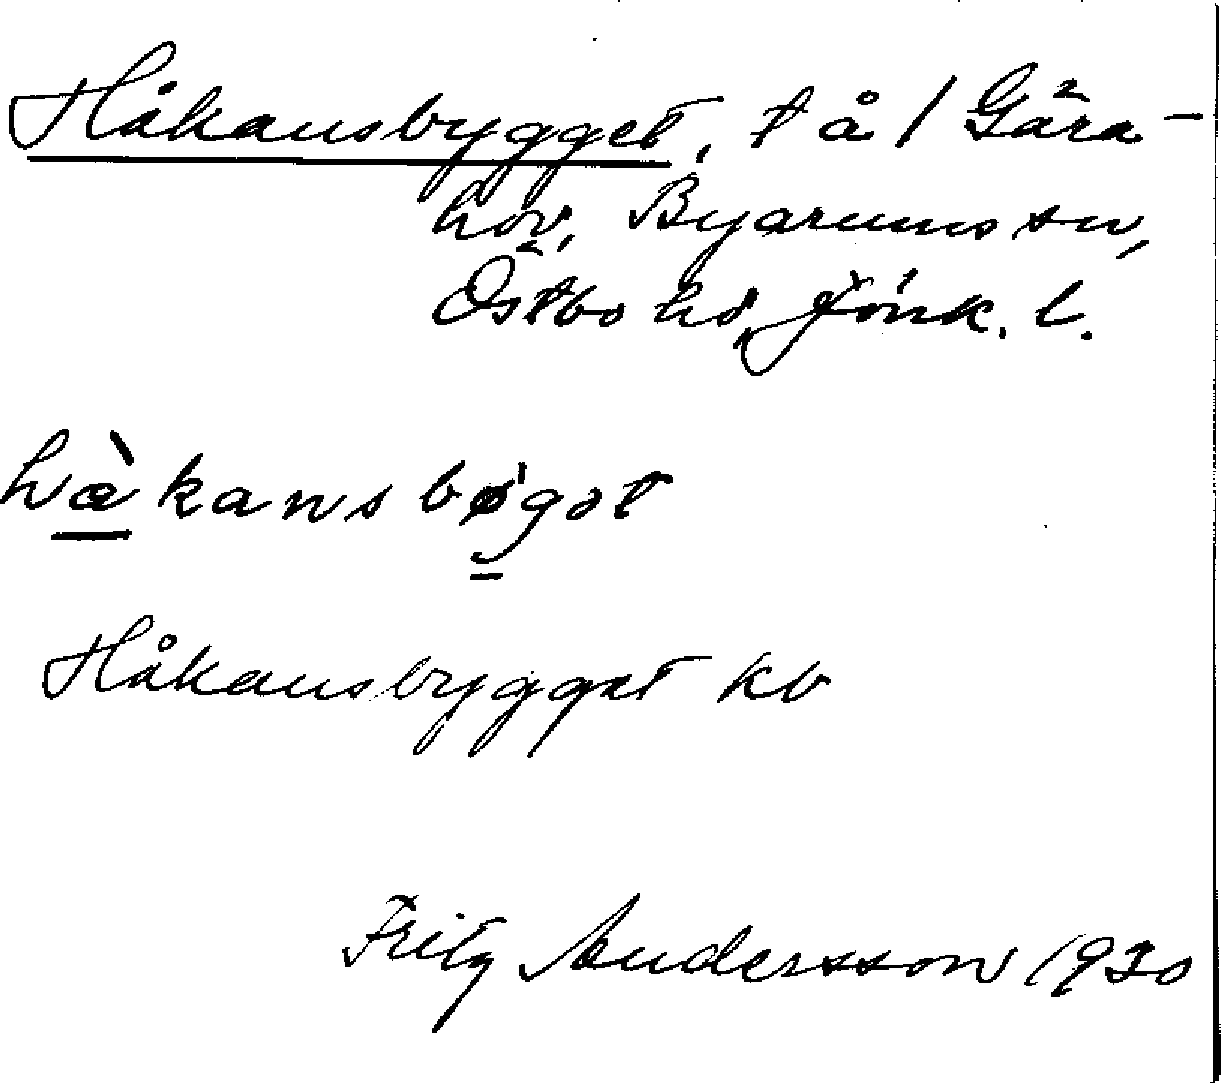 Håkansbygget, t å 1 Gära-
hov, Byarums sn,
Östbo hd, Jönk. l.
hàkansbøgət
Håkansbygget kb
Fritz Andersson 1930